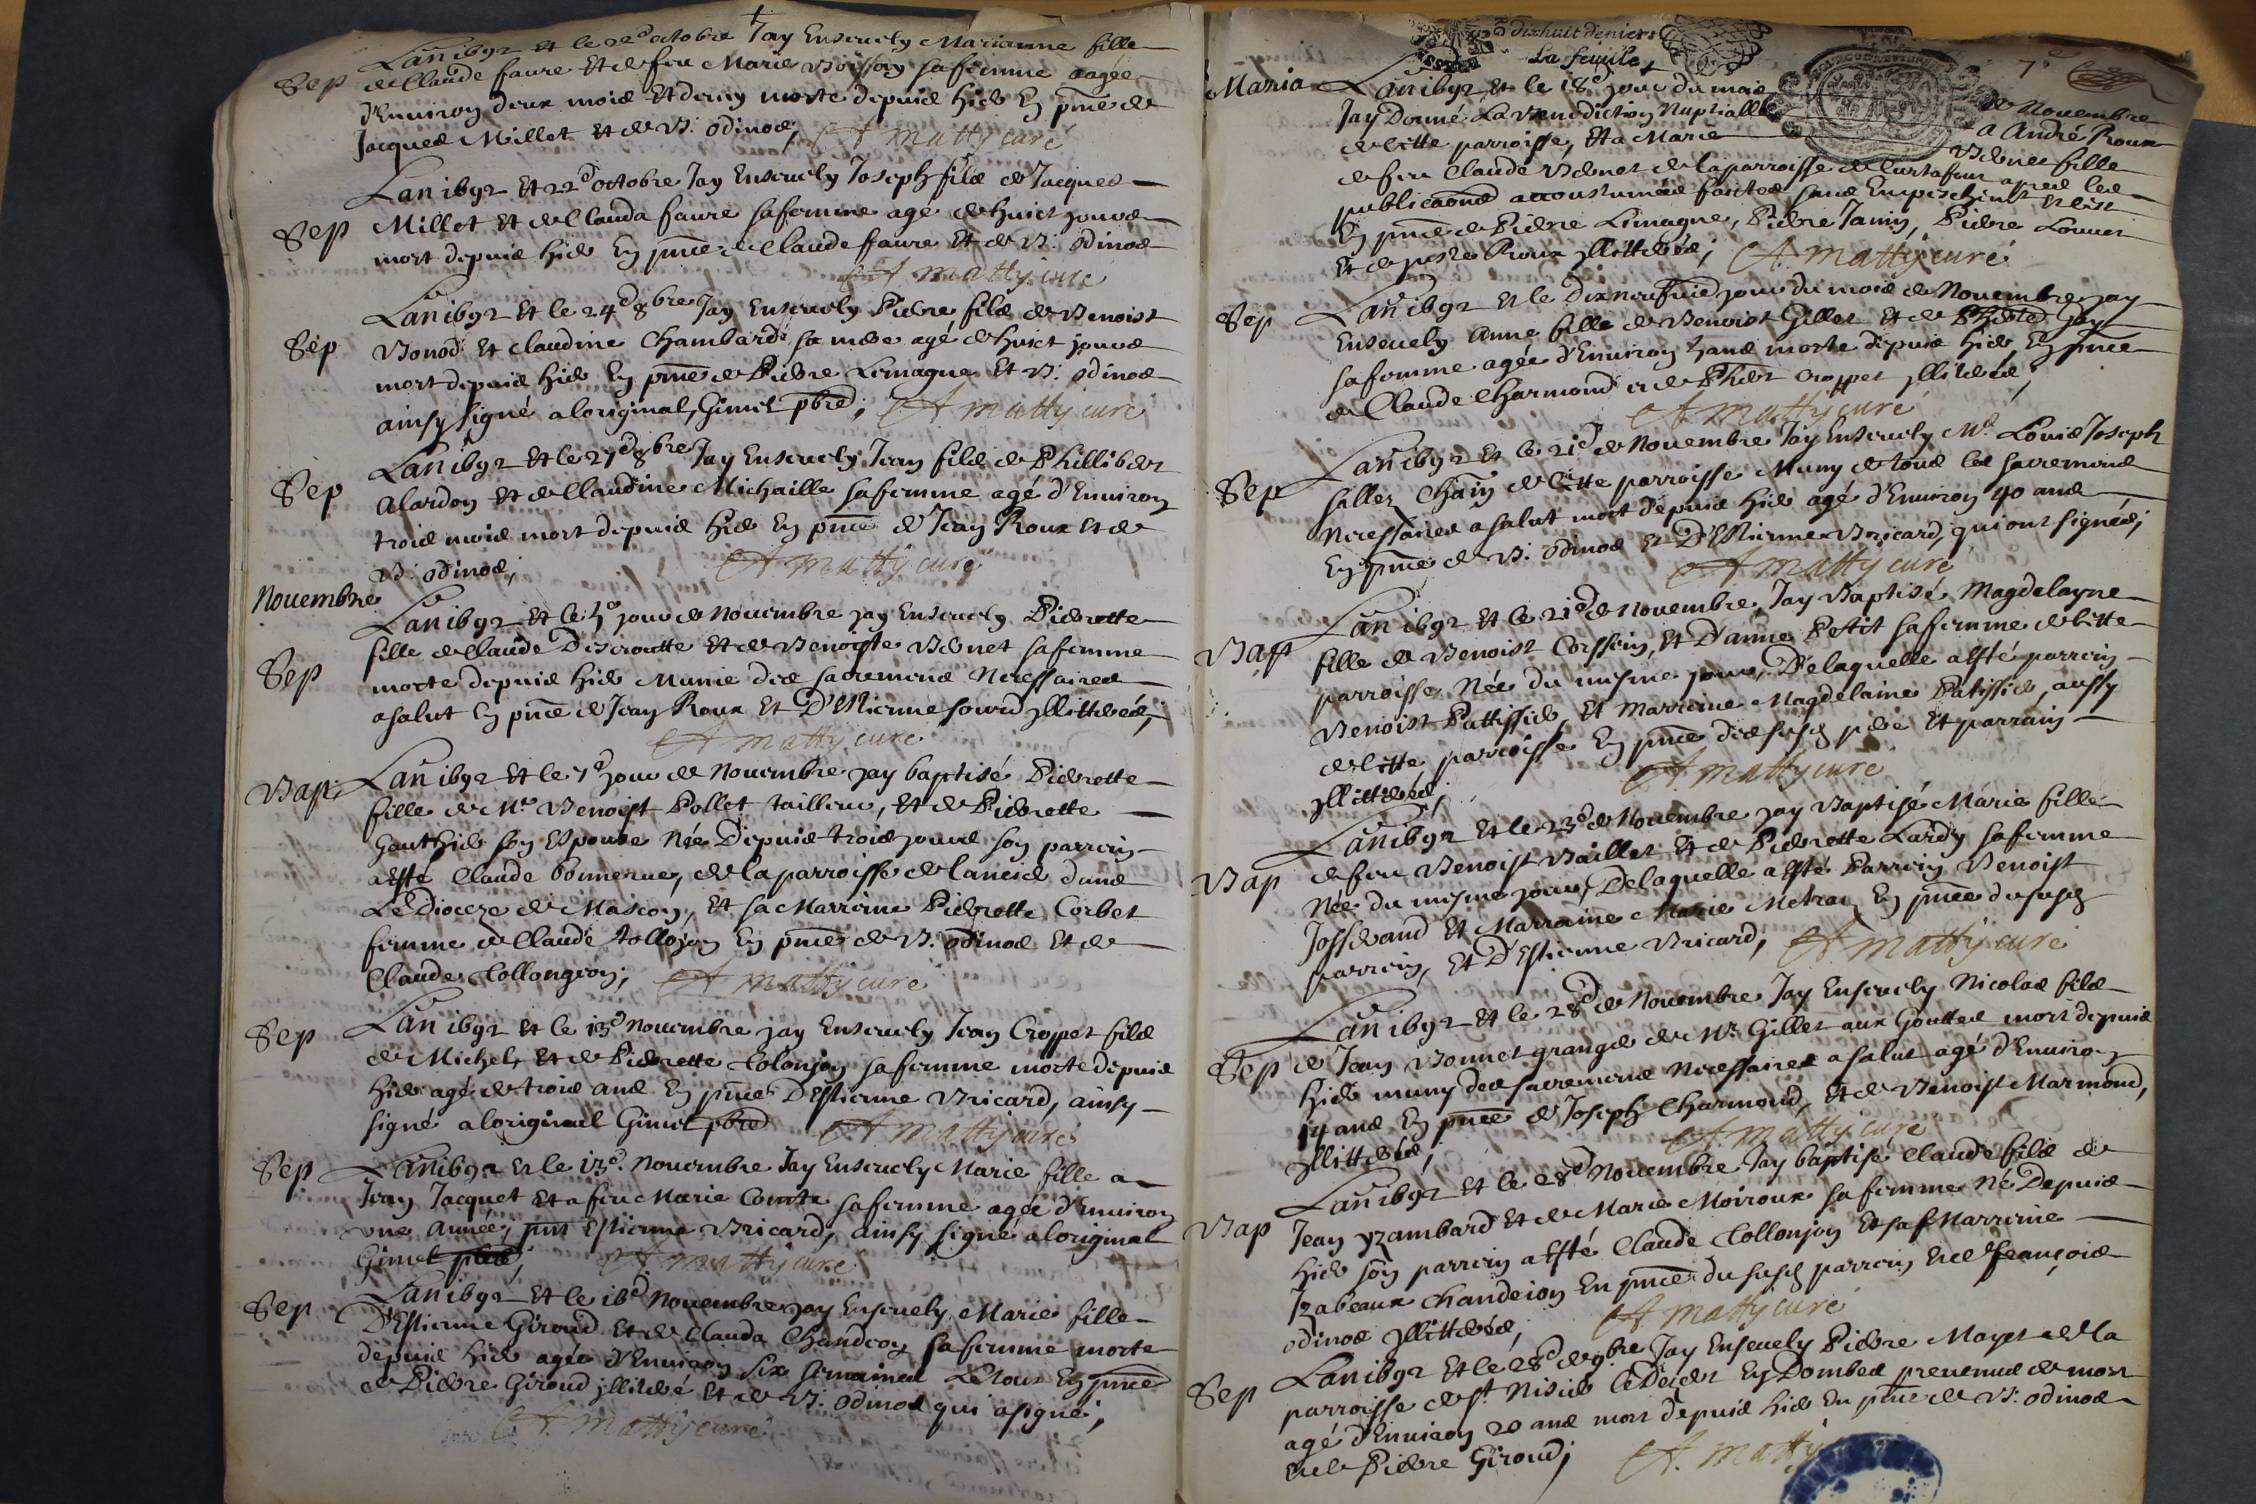 Sep
L'an 1692 et le 22e octobre Jay Ensevely Marianne fille
de Claude faure Et de feu Marie Voisson sa femme aagée
d'Environ deux mois Et demy morte depuis hier En pnce de
Jacques Millet Et de B: odinos, A Matty curé
Sep
L'an 1692 Et 22e octobre Jay Ensevely Joseph fils de Jacques
Millet Et de Clauda faure sa femme agé de huict jours
mort depuis hier En pnce de Claude faure Et de B: odinos
A matty curé
Sep
L'an 1692 Et le 24e 8bre Jay Ensevely Pierre fils de Benoist
Bonod Et Claudine Chambard sa mere agé de huict jours
mort depuis hier En pnce de Pierre Limagne Et B: odinos
ainsy signé a loriginal, Gimet pbre; A matty curé
Sep
L'an 1692 Et le 27e 8bre Jay Ensevely Jean fils de Phillibert
Alardon Et de Claudine Michaille sa femme agé d'Environ
trois mois mort depuis hier En pnce de Jean Roux Et de
B: odinos, A matty curé
Novembre
Sep
L'an 1692 Et le jour de Novembre Jay Ensevely Pierrette
fille de Claude Descroutte Et de Benoiste Venet sa femme
morte depuis hier Munie des sacremens Necessaires
a salut En pnce de Jean Roux Et D'Estienne illitterés,
A matty curé
Bap
L'an 1692 Et le 7e Jour de Novembre Jay baptisé Pierrette
fille de Me Benoist Pollet tailleur, Et de Pierrette
Gauthier son Espouse Née Depuis trois jours son parrein
a Esté Claude bonnerue, de la parroisse de lancié dans
Le Dioceze de Mascon, Et sa Marreine Pierrette Corbet
femme de Claude En pnce de B. odinos Et de
Claude Collongeon; A Matty curé
Sep
L'an 1692 Et le 13e Novembre Jay Ensevely Jean Croppet fils
de Michel, Et de Pierrette Colonjon sa femme morte depuis
hier agé de trois ans En pnce D'Estienne Bricard, ainsy
signé a loriginal Gimet pbre A Matty curé
Sep
L'an 1692 Et le 13e. Novembre Jay Ensevely Marie fille a
Jean Jacquet Et a feu Marie Comte sa femme agée d'Environ
une année, pnt Estienne Bricard, ainsy signé a loriginal
Gimet pbre, A matty curé
Sep
L'an 1692 Et le 16e Novembre Jay Ensevely Marie fille
D'Estienne Giroud Et de Clauda Chandeon sa femme morte
depuis hier agée d'Environ six semaines Le tout En pnce
de Pierre Giroud illiteré Et de B: Odinos qui a signé;
A. Matty curé
dixhuit deniers
La feuille,
7e
Maria
L'an 1692 Et le 18e jour du mois de Novembre
Jay Donné La Benediction Nuptialle a André Roux
de Cette parroisse, Et a Marie Venet fille
de feu Claude Venet de la parroisse de Curtafon apres les
publicaons accoustumées faictes sans Empeschemt Et c'est
En pnce de Pierre Limagne, Pierre Janin, Pierre
Et de Roux illitterés; A. Matty curé
Sep
L'an 1692 Et le Dixneufvie jour du mois de Novembre jay
Ensevely Anne fille de Benoist Gillet Et de
sa femme agée d'Environ ans morte depuis hier En pnce
de Claude Charmond Et de Croppet illiterés;
A Matty curé
Sep
L'an 1692 Et le 21e de Novembre Jay Ensevely Mr. Louis Joseph
de Cette parroisse Muny de tous les sacremens
Necessaires a salut mort depuis hier agé d'Environ 40 ans
En pnce de B: odinos Et D'Estienne Bricard, qui ont signés;
A Matty curé
Bap
L'an 1692 Et le 21e de Novembre, Jay Baptisé Magdelayne
fille de Benoist Corssein, Et D'anne Petit sa femme de Cette
parroisse Née du mesme jour, De laquelle a Esté parrein
Benoist Pattissier, Et Marreine Magdelaine Patissier, aussy
de Cette parroisse En pnce des susd pere Et parrain
illitterés; A. Matty curé
Bap
L'an 1692 Et le 23e de Novembre Jay Baptisé Marie fille
de feu Benoist Baillet Et de Pierrette Lardy sa femme
Née du mesme jour, De laquelle a Esté Parrein Benoist
Josserand Et Marraine Marie Metrat En pnce du susd
parrein, Et D'Estienne Bricard, A Matty curé
Sep
L'an 1692 Et le 28e de Novembre Jay Ensevely Nicolas fils
de Jean Bonnet granger de Mr. Gillet aux Gouttes mort depuis
hier muny des sacremens Necessaires a salut agé d'Environ
14 ans En pnce de Joseph Charmond, Et de Benoist Marmond,
illitterés; A Matty curé
Bap
L'an 1692 Et le 28e Novembre Jay baptisé Claude fils de
Jean yzambard Et de Marie Moiroux sa femme Né Depuis
hier son parrein a Esté Claude Collonjon Et sa Marreine
Izabeaux Chandeion En pnce du susd parrein Et de françois
odinos illitterés, A Matty curé
Sep
L'an 1692 Et le 28e de 9bre Jay Ensevely Pierre Mayet de la
parroisse de St. Nisier le Desert En Dombes prevenus de mort
agé d'Environ 20 ans mort depuis hier En pnce de B: odinos
Et de Pierre Giroud; A. Matty